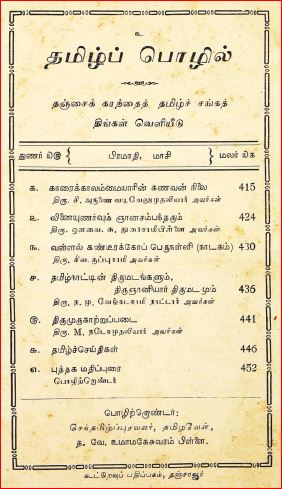 உ
தமிழ்ப் பொழில்
தஞ்சைக் கரந்தைத் தமிழ்ச் சங்கத்
திங்கள் வெளியீடு
துணர் ௧௫ { பிரமாதி, மாசி } மலர் ௧௧
௧. காரைக்காலம்மையாரின் கணவன் நிலை 415
திரு. சி. அருணை வடிவேலுமுதலியார் அவர்கள்
௨. வினையுணர்வும் ஞானசம்பந்தரும் 424
திரு. ஔவை. சு. துரைசாமிபிள்ளை அவர்கள்
௩. வள்ளல் கண்டீரக்கோப் பெருநள்ளி (நாடகம்) 430
திரு. சிவ. குப்புசாமி அவர்கள்
௪. தமிழ்நாட்டின் திருமடங்களும்,
திருஞானியார் திருமடமும் 436
திரு. ந. மு. வேங்கடசாமி நாட்டார் அவர்கள்
௫. திருமுருகாற்றுப்படை 441
திரு. M. நடேசமுதலியார் அவர்கள்
௬. தமிழ்ச்செய்திகள் 446
௭. புத்தக மதிப்புரை 452
பொழிற்றொண்டர்
பொழிற்றொண்டர்:
செந்தமிழ்ப்புரவலர், தமிழவேள்,
த. வே. உமாமகேசுவரம் பிள்ளை,
கூட்டுறவுப் பதிப்பகம், தஞ்சாவூர்